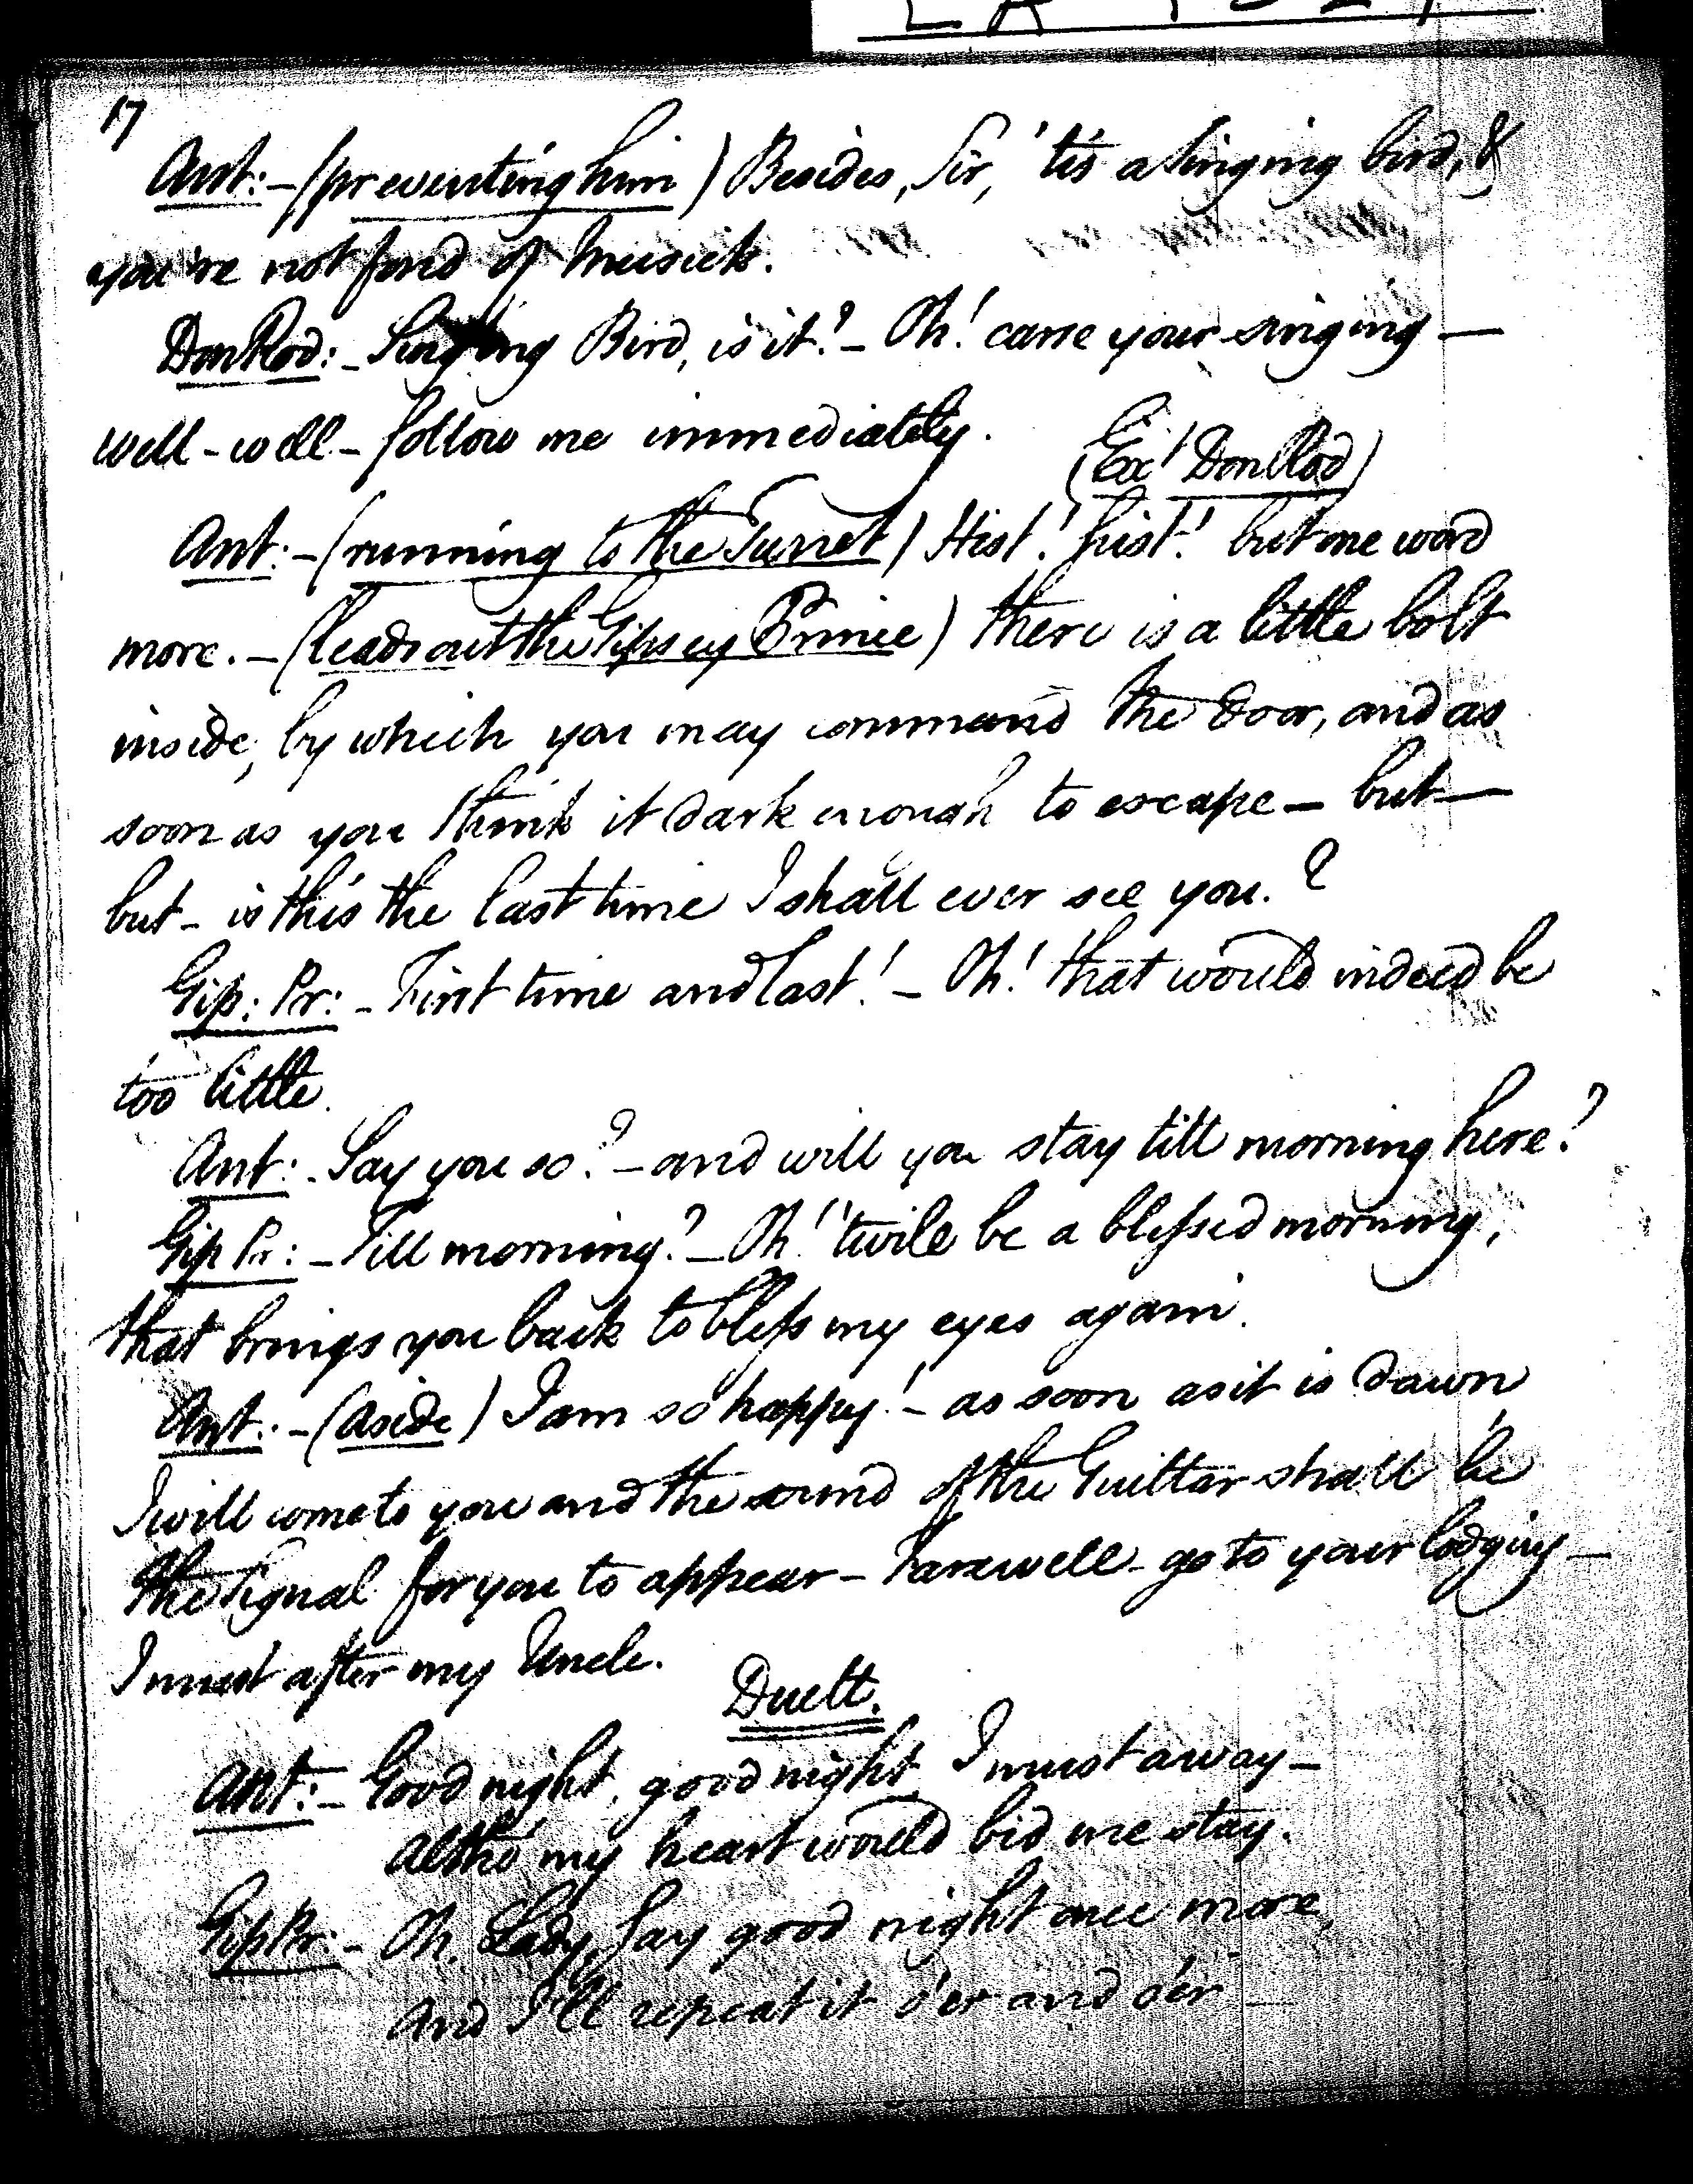 17
Ant:- (preventing him) Besides, Sir, 'tis a singing bird, &
you're not fond of Musick.
Don Rod:- Singing Bird, is it? - Oh! curse your singing -
well - well - follow me immediately.
(Ex! Don Rod)
Ant:- (running to the Turret) Hist! hist! but one word
more. - (leads out the Gipsey Prince) there is a little bolt
inside, by which you may command the door, and as
soon as you think it dark enough to escape - but -
but - is this the last time I shall ever see you.?
Gip: Pr: - First time and last! - Oh! that would indeed be
too little.
Ant: - Say you so? - and will you stay till morning here?
Gip Pr: - Till morning? - Oh! 'twile be a blessed morning,
that brings you back to bless my eyes again.
Ant:- (aside) I am so happy! - as soon as it is dawn,
I will come to you and the sound of the Guittar shall be
the Signal for you to appear - Farewell - go to your lodging -
I must after my Uncle.
Duett.
Ant:- Good night, good night, I must away -
altho' my heart would bid me stay.
Gip Pr:- Oh, Lady, Say good night once more,
And I'll repeat it o'er and o'er -